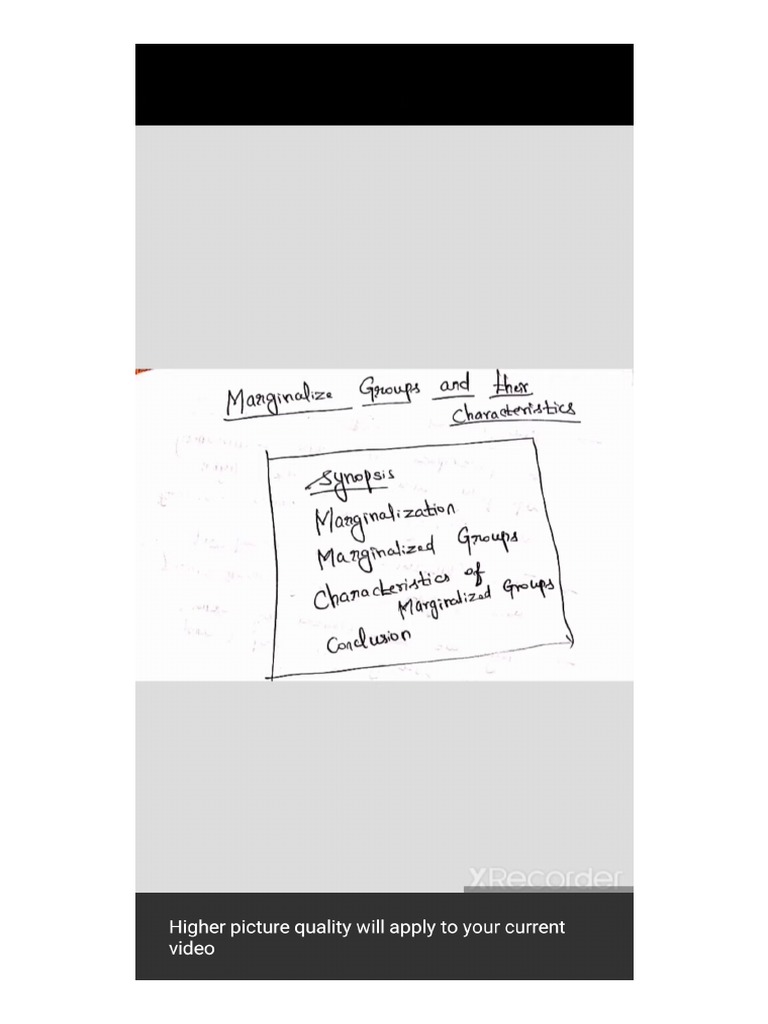 Marginalize Groups and their
Characteristics
Synopsis
Marginalization
Marginalized Groups
Characteristics of
Marginalized Groups
Conclusion
XRecorder
Higher picture quality will apply to your current
video